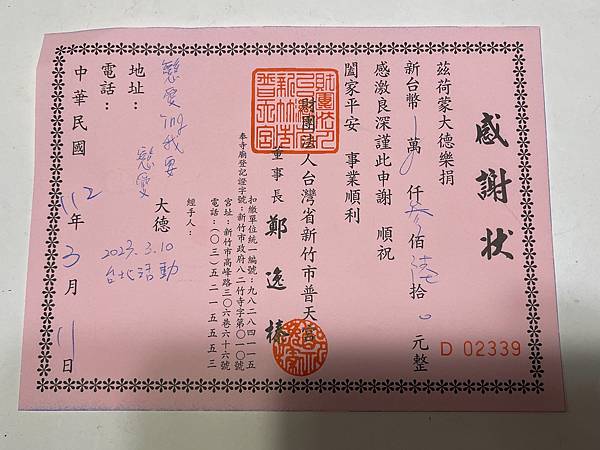 感謝狀
茲荷蒙大德樂捐
新台幣一萬 仟參佰陸拾0元整
感激良深謹此申謝 順祝
闔家平安 事業順利
財團法人台灣省新竹市普天宮
董事長 鄭逸榛
扣繳單位統一編號:九八二八四一一五
奉寺廟登記證字號:新竹市政府八二竹寺字第〇一〇號
宮址:新竹市高峰路三〇六巷六十六號
電話:(〇三)五二一五五五三
經手人:
戀愛ing我要
戀愛
大德
2023.3.10
台北活動
地址:
電話:
中華民國112年3月11日
D 02339